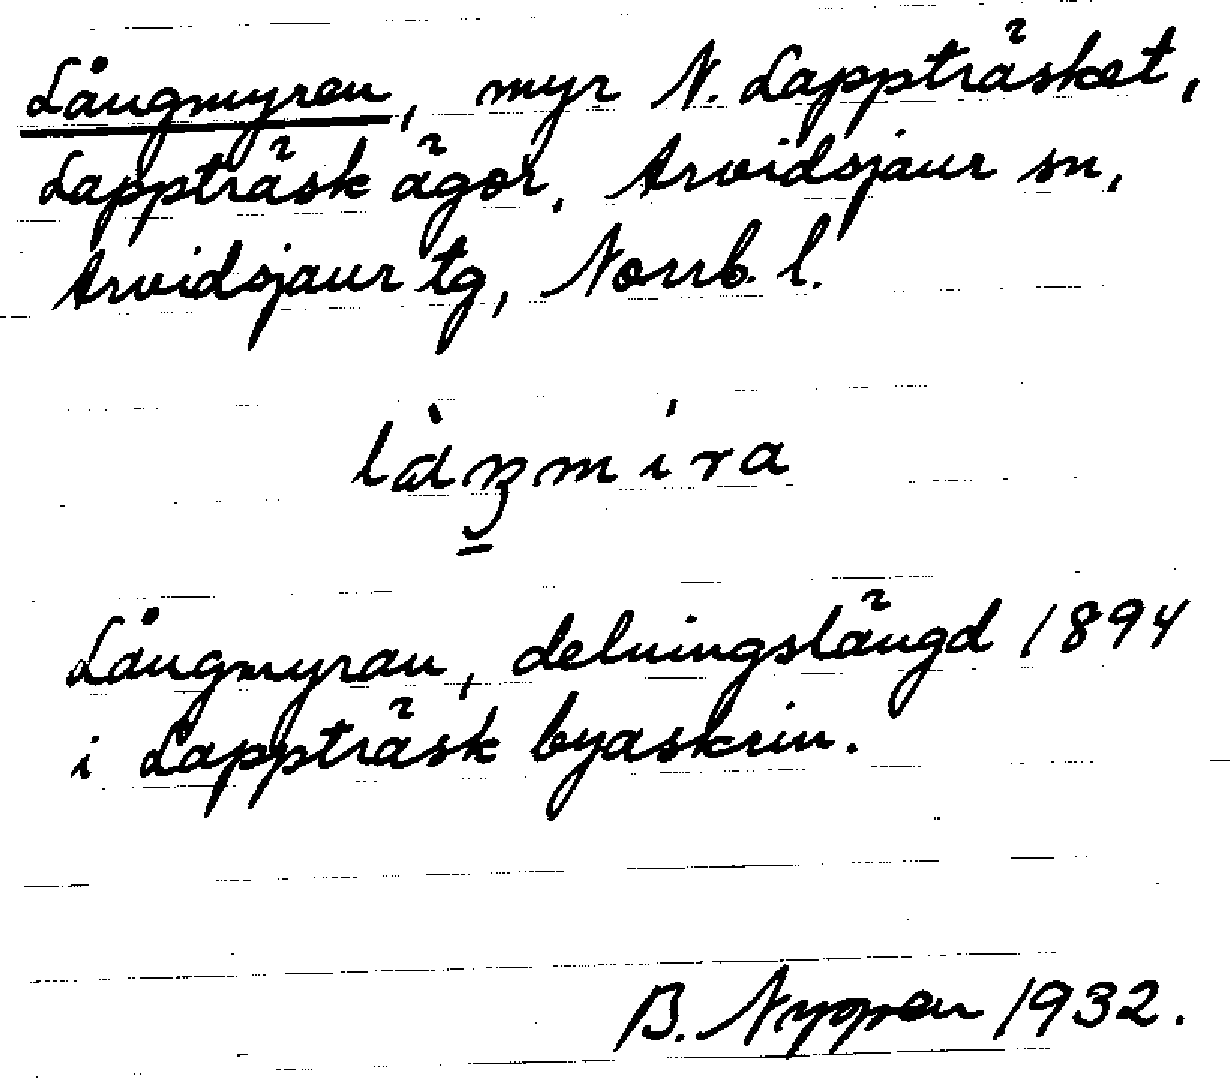 Långmyren, myr N. Lappträsket,
Lappträsk ägor, Arvidsjaur sn,
Arvidsjaur tg, Norrb. l.
Långmyran, delningslängd 1894
i Lappträsk byaskrin.
B. Nyppen 1932.